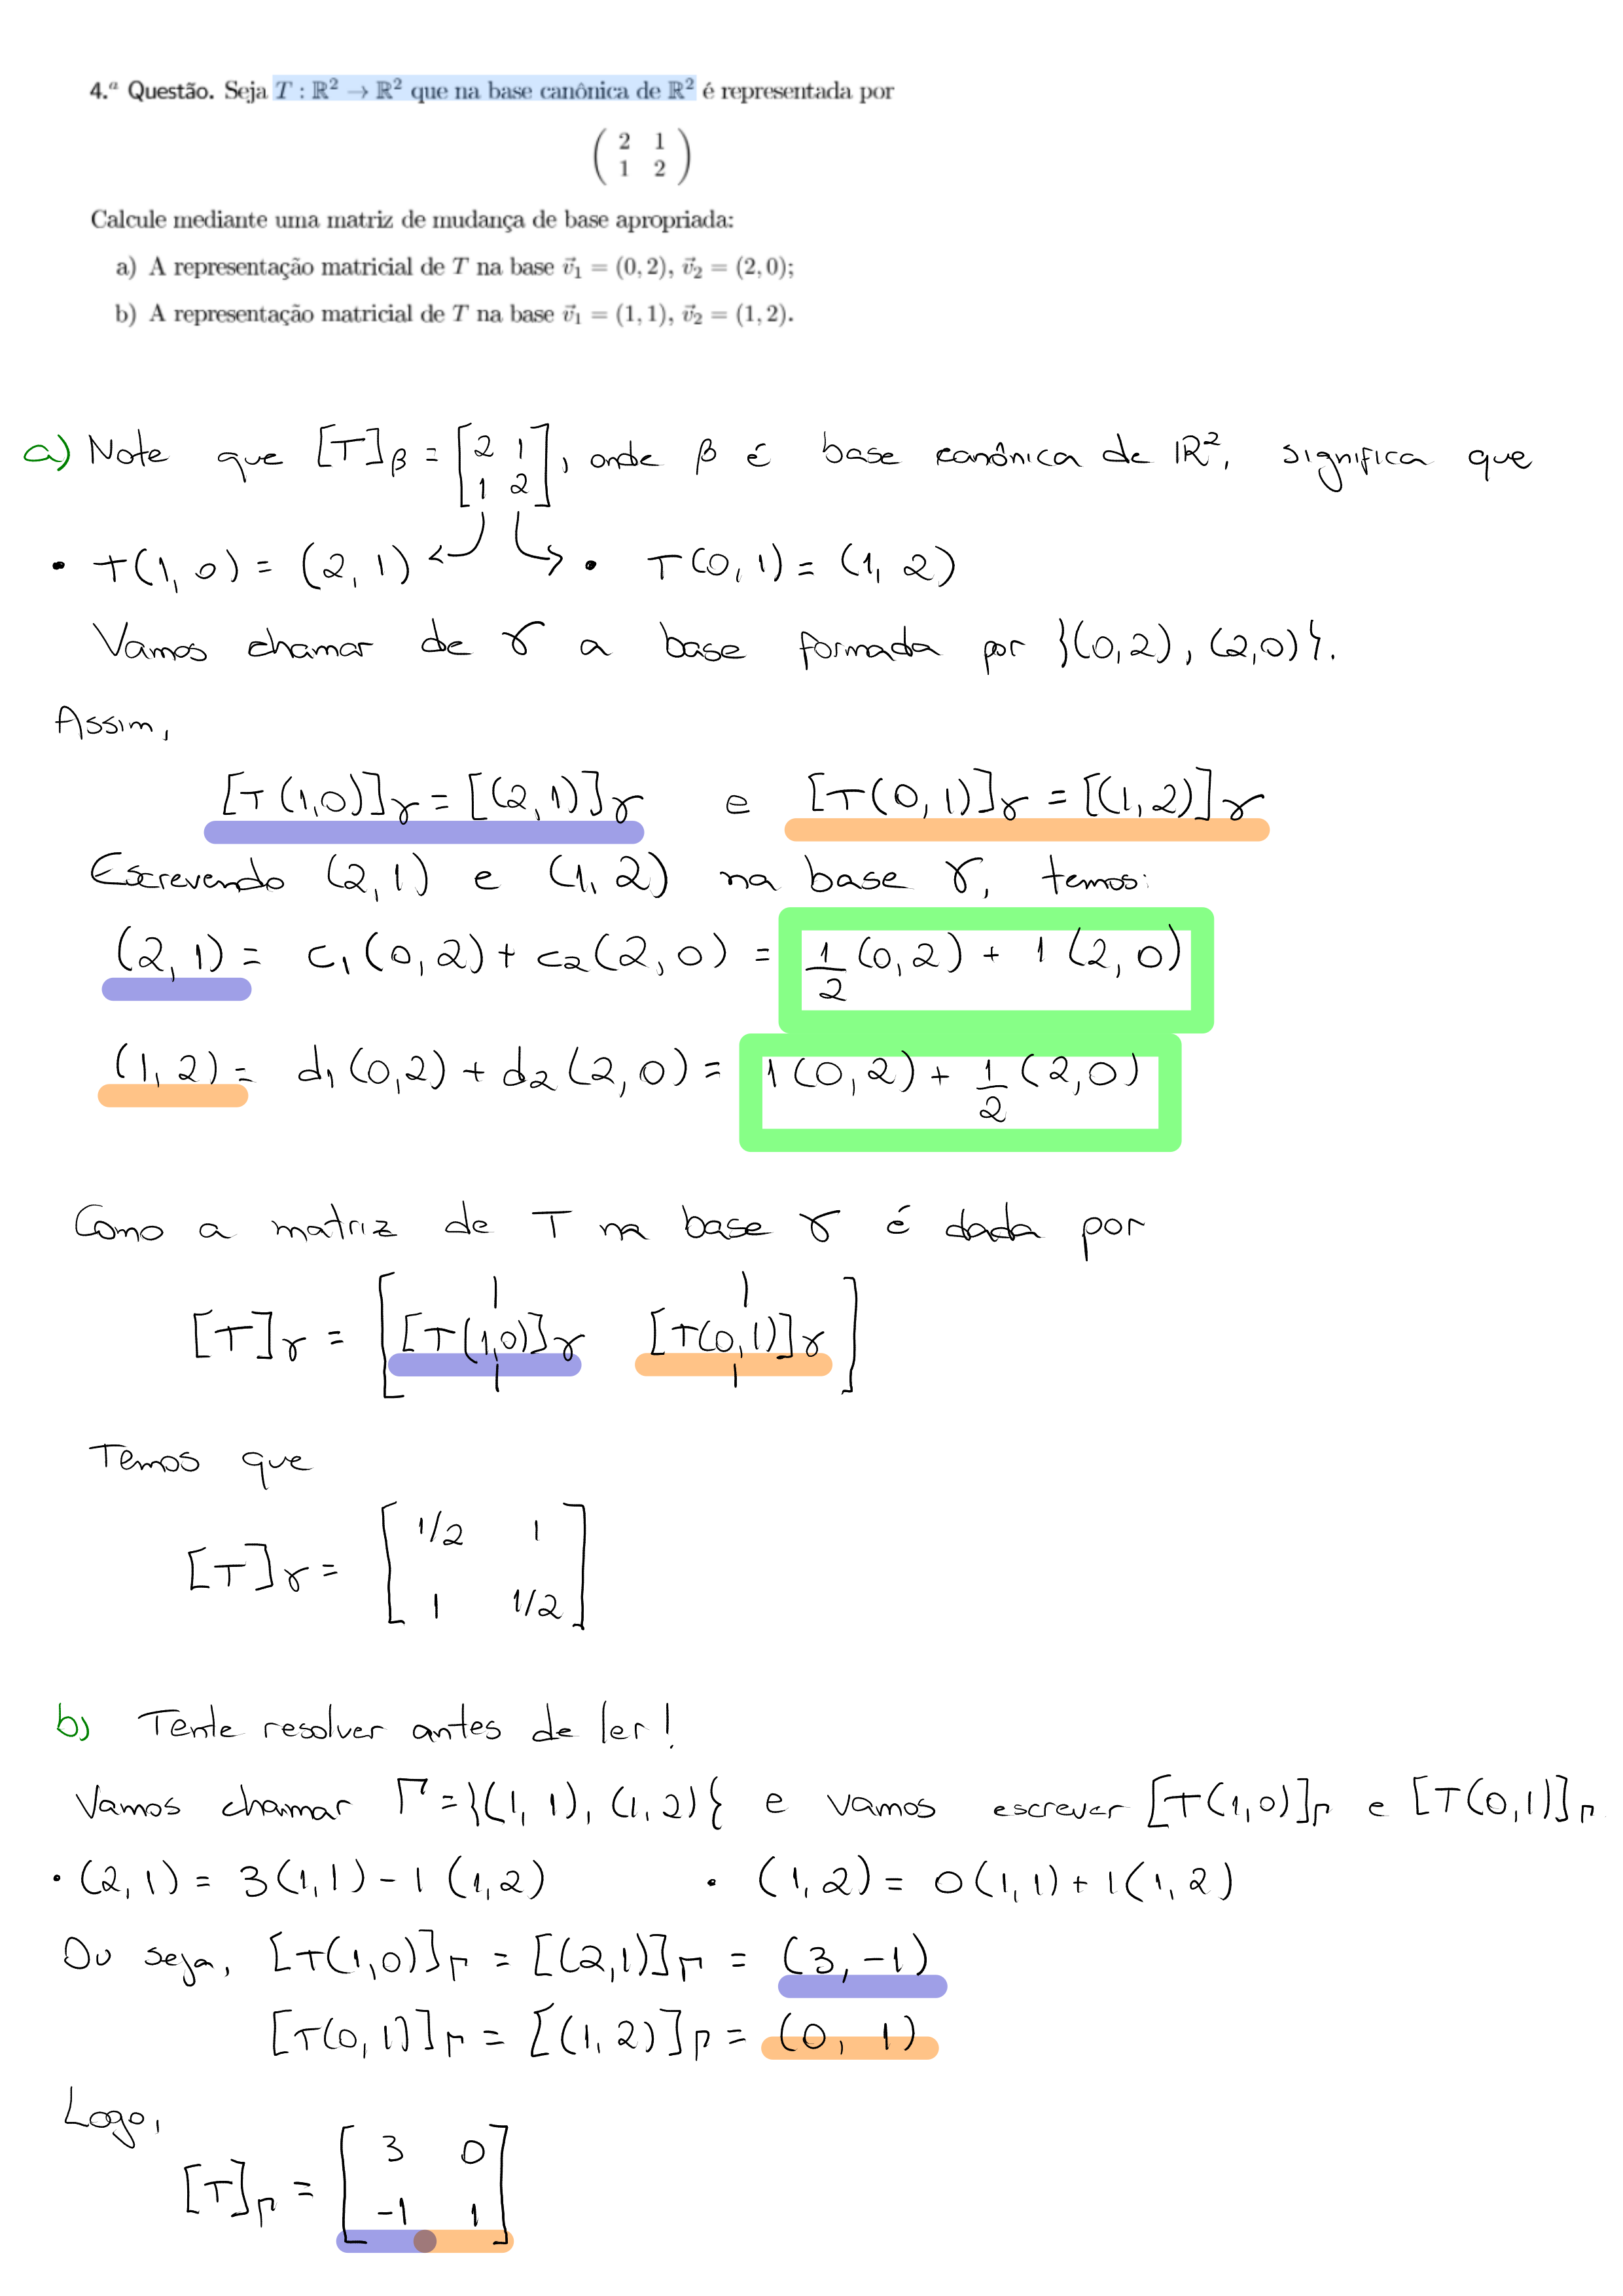 4.ª Questão. Seja T : ℝ² → ℝ² que na base canônica de ℝ² é representada por
( 2 1
1 2 )
Calcule mediante uma matriz de mudança de base apropriada:
a) A representação matricial de T na base v⃗₁ = (0, 2), v⃗₂ = (2, 0);
b) A representação matricial de T na base v⃗₁ = (1, 1), v⃗₂ = (1, 2).
a) Note que [T]β = [2 1; 1 2], onde β é base canônica de ℝ², significa que
• T(1, 0) = (2, 1) • T(0, 1) = (1, 2)
Vamos chamar de γ a base formada por {(0,2), (2,0)}.
Assim,
[T(1,0)]γ = [(2,1)]γ e [T(0,1)]γ = [(1,2)]γ
Escrevendo (2,1) e (1,2) na base γ, temos:
(2,1) = c₁(0,2) + c₂(2,0) = 1/2 (0,2) + 1(2,0)
(1,2) = d₁(0,2) + d₂(2,0) = 1(0,2) + 1/2 (2,0)
Como a matriz de T na base γ é dada por
[T]γ = [ [T(1,0)]γ [T(0,1)]γ ]
Temos que
[T]γ = [ 1/2 1
1 1/2 ]
b) Tente resolver antes de ler!
Vamos chamar Γ = {(1,1), (1,2)} e vamos escrever [T(1,0)]Γ e [T(0,1)]Γ
• (2,1) = 3(1,1) - 1(1,2) • (1,2) = 0(1,1) + 1(1,2)
Ou seja, [T(1,0)]Γ = [(2,1)]Γ = (3,-1)
[T(0,1)]Γ = [(1,2)]Γ = (0, 1)
Logo,
[T]Γ = [ 3 0
-1 1 ]